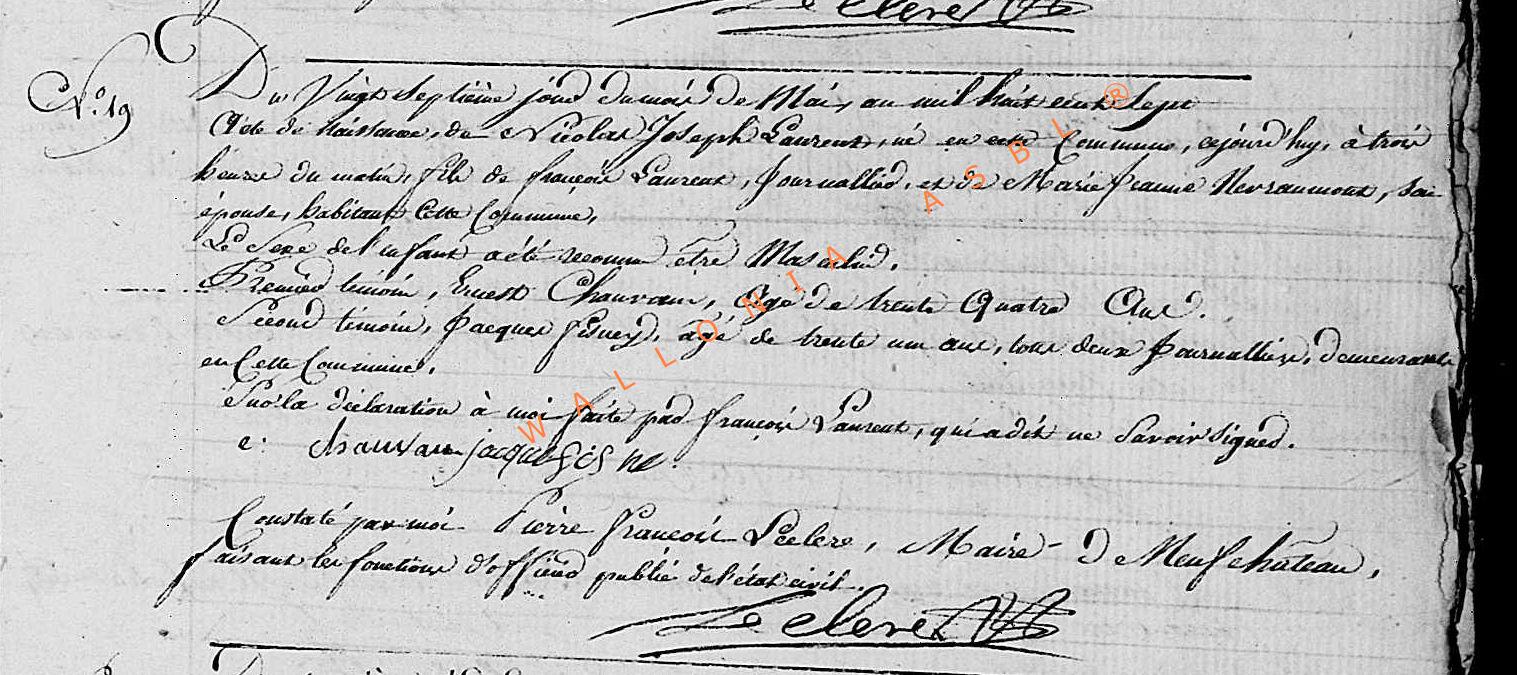 Le Clerc
N.º 19
Du Vingt Septième jour du mois de Mai, an mil huit cent Sept
Acte de Naissance, de Nicolas Joseph Laurent, né en cette Commune, cejourd'huy, à trois
heures du matin, fils de françois Laurent, Journallier, et de Marie Jeanne Nevraumont, son
épouse, habitant Cette Commune,
Le Sexe de l'enfant a été reconnu être Masculin.
Premier témoin, Ernest Chauvaux, Agé de trente Quatre Ans.
Second témoin, Jacques Gisney, âgé de trente un ans, tous deux Journalliers, demeurants
en Cette Commune.
Sur la déclaration à moi faite par françois Laurent, qui a dit ne Savoir Signer.
e: chauvau jacque
Constaté par moi Pierre françois Leclerc, Maire de Neufchateau,
faisant les fonctions d'officier public de l'état civil.
Le Clerc
WALLONIA ASBL ®